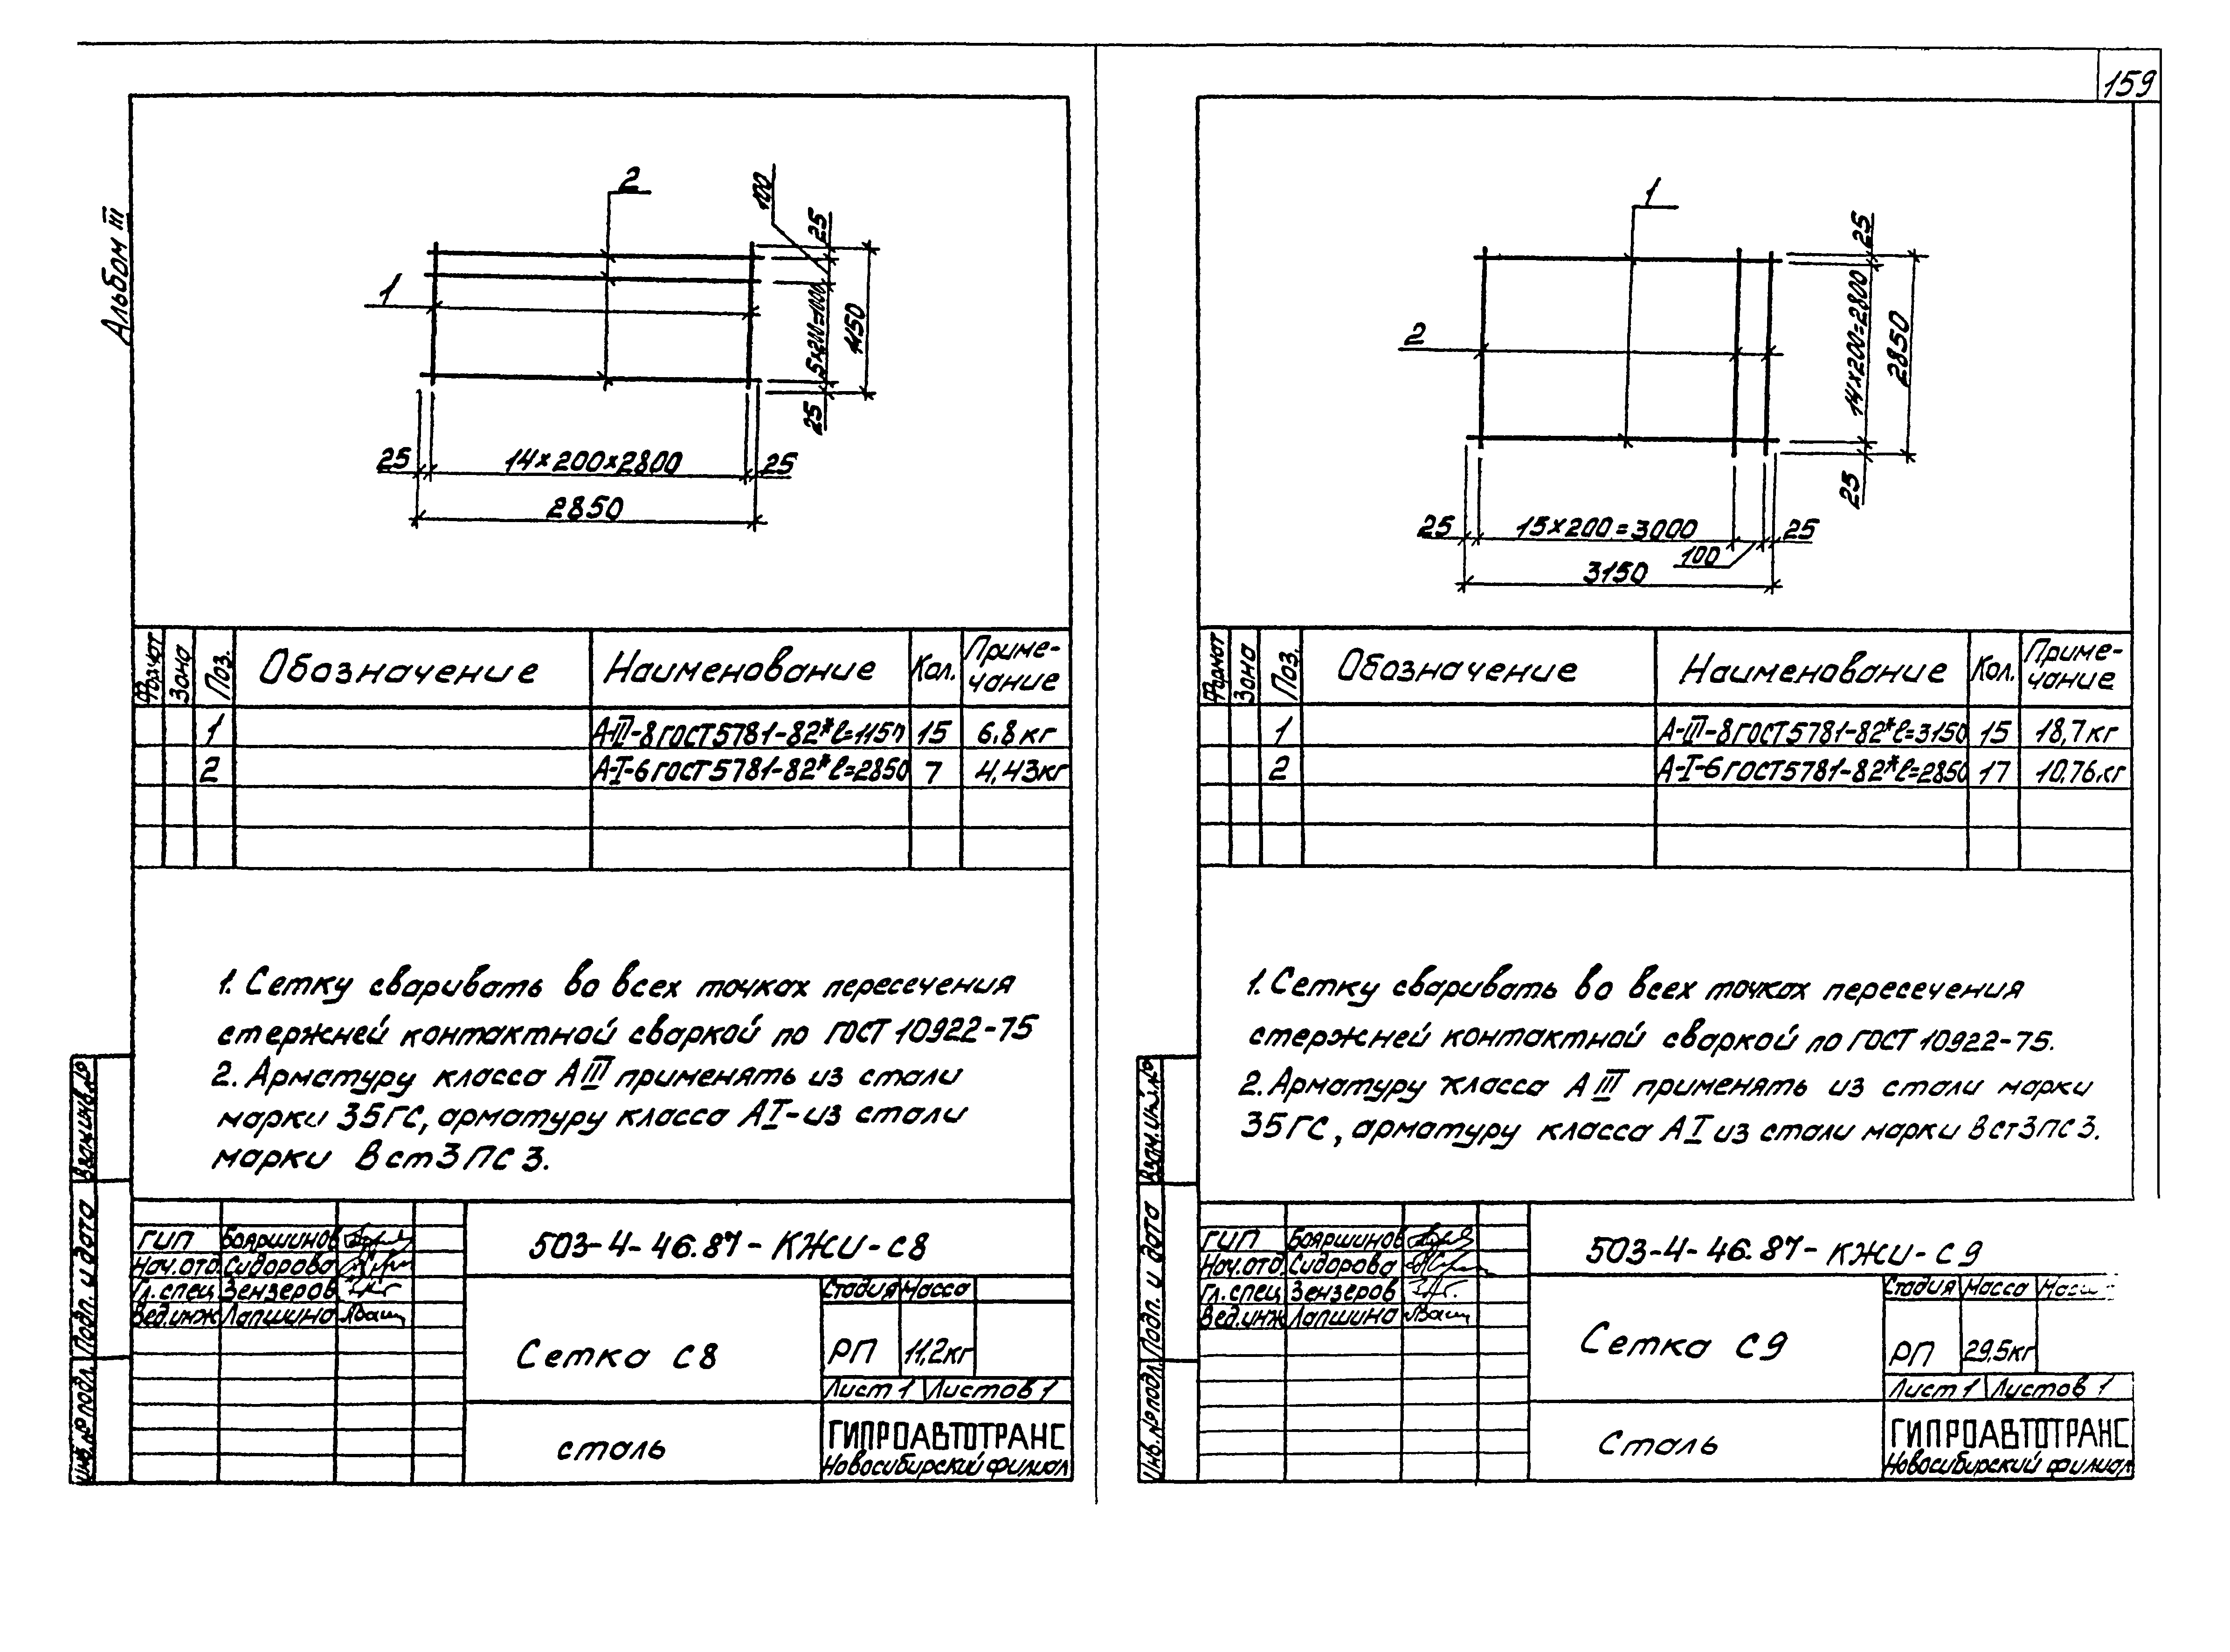 159
Альбом III
2
100
25
1
5×200=1000
1150
25
25
14×200×2800
25
2850
Формат Зона Поз. Обозначение Наименование Кол. Приме-
чание
1 А-III-8 ГОСТ 5781-82* ℓ=1150 15 6,8 кг
2 А-I-6 ГОСТ 5781-82* ℓ=2850 7 4,43кг
1. Сетку сваривать во всех точках пересечения
стержней контактной сваркой по ГОСТ 10922-75
2. Арматуру класса А III применять из стали
марки 35ГС, арматуру класса АI-из стали
марки Вст3пс3.
Взам.инв.№
Подп. и дата
Инв.№ подл.
503-4-46.87-КЖИ-с8
ГИП Бояршинов
Нач.отд. Сидорова
Гл.спец Зензеров
Вед.инж Лапшина
Стадия Масса
Сетка с8
РП 11,2кг
Лист 1 Листов 1
сталь
ГИПРОАВТОТРАНС
Новосибирский филиал
1
25
2
14×200=2800
2850
25
25
15×200=3000
25
100
3150
Формат Зона Поз. Обозначение Наименование Кол. Приме-
чание
1 А-III-8 ГОСТ 5781-82* ℓ=3150 15 18,7 кг
2 А-I-6 ГОСТ 5781-82* ℓ=2850 17 10,76 кг
1. Сетку сваривать во всех точках пересечения
стержней контактной сваркой по ГОСТ 10922-75.
2. Арматуру класса А III применять из стали марки
35ГС, арматуру класса А I из стали марки Вст3пс3.
Взам.инв.№
Подп. и дата
Инв.№ подл.
503-4-46.87-КЖИ-с9
ГИП Бояршинов
Нач.отд. Сидорова
Гл.спец Зензеров
Вед.инж Лапшина
Стадия Масса
Сетка с9
РП 29,5кг
Лист 1 Листов 1
Сталь
ГИПРОАВТОТРАНС
Новосибирский филиал